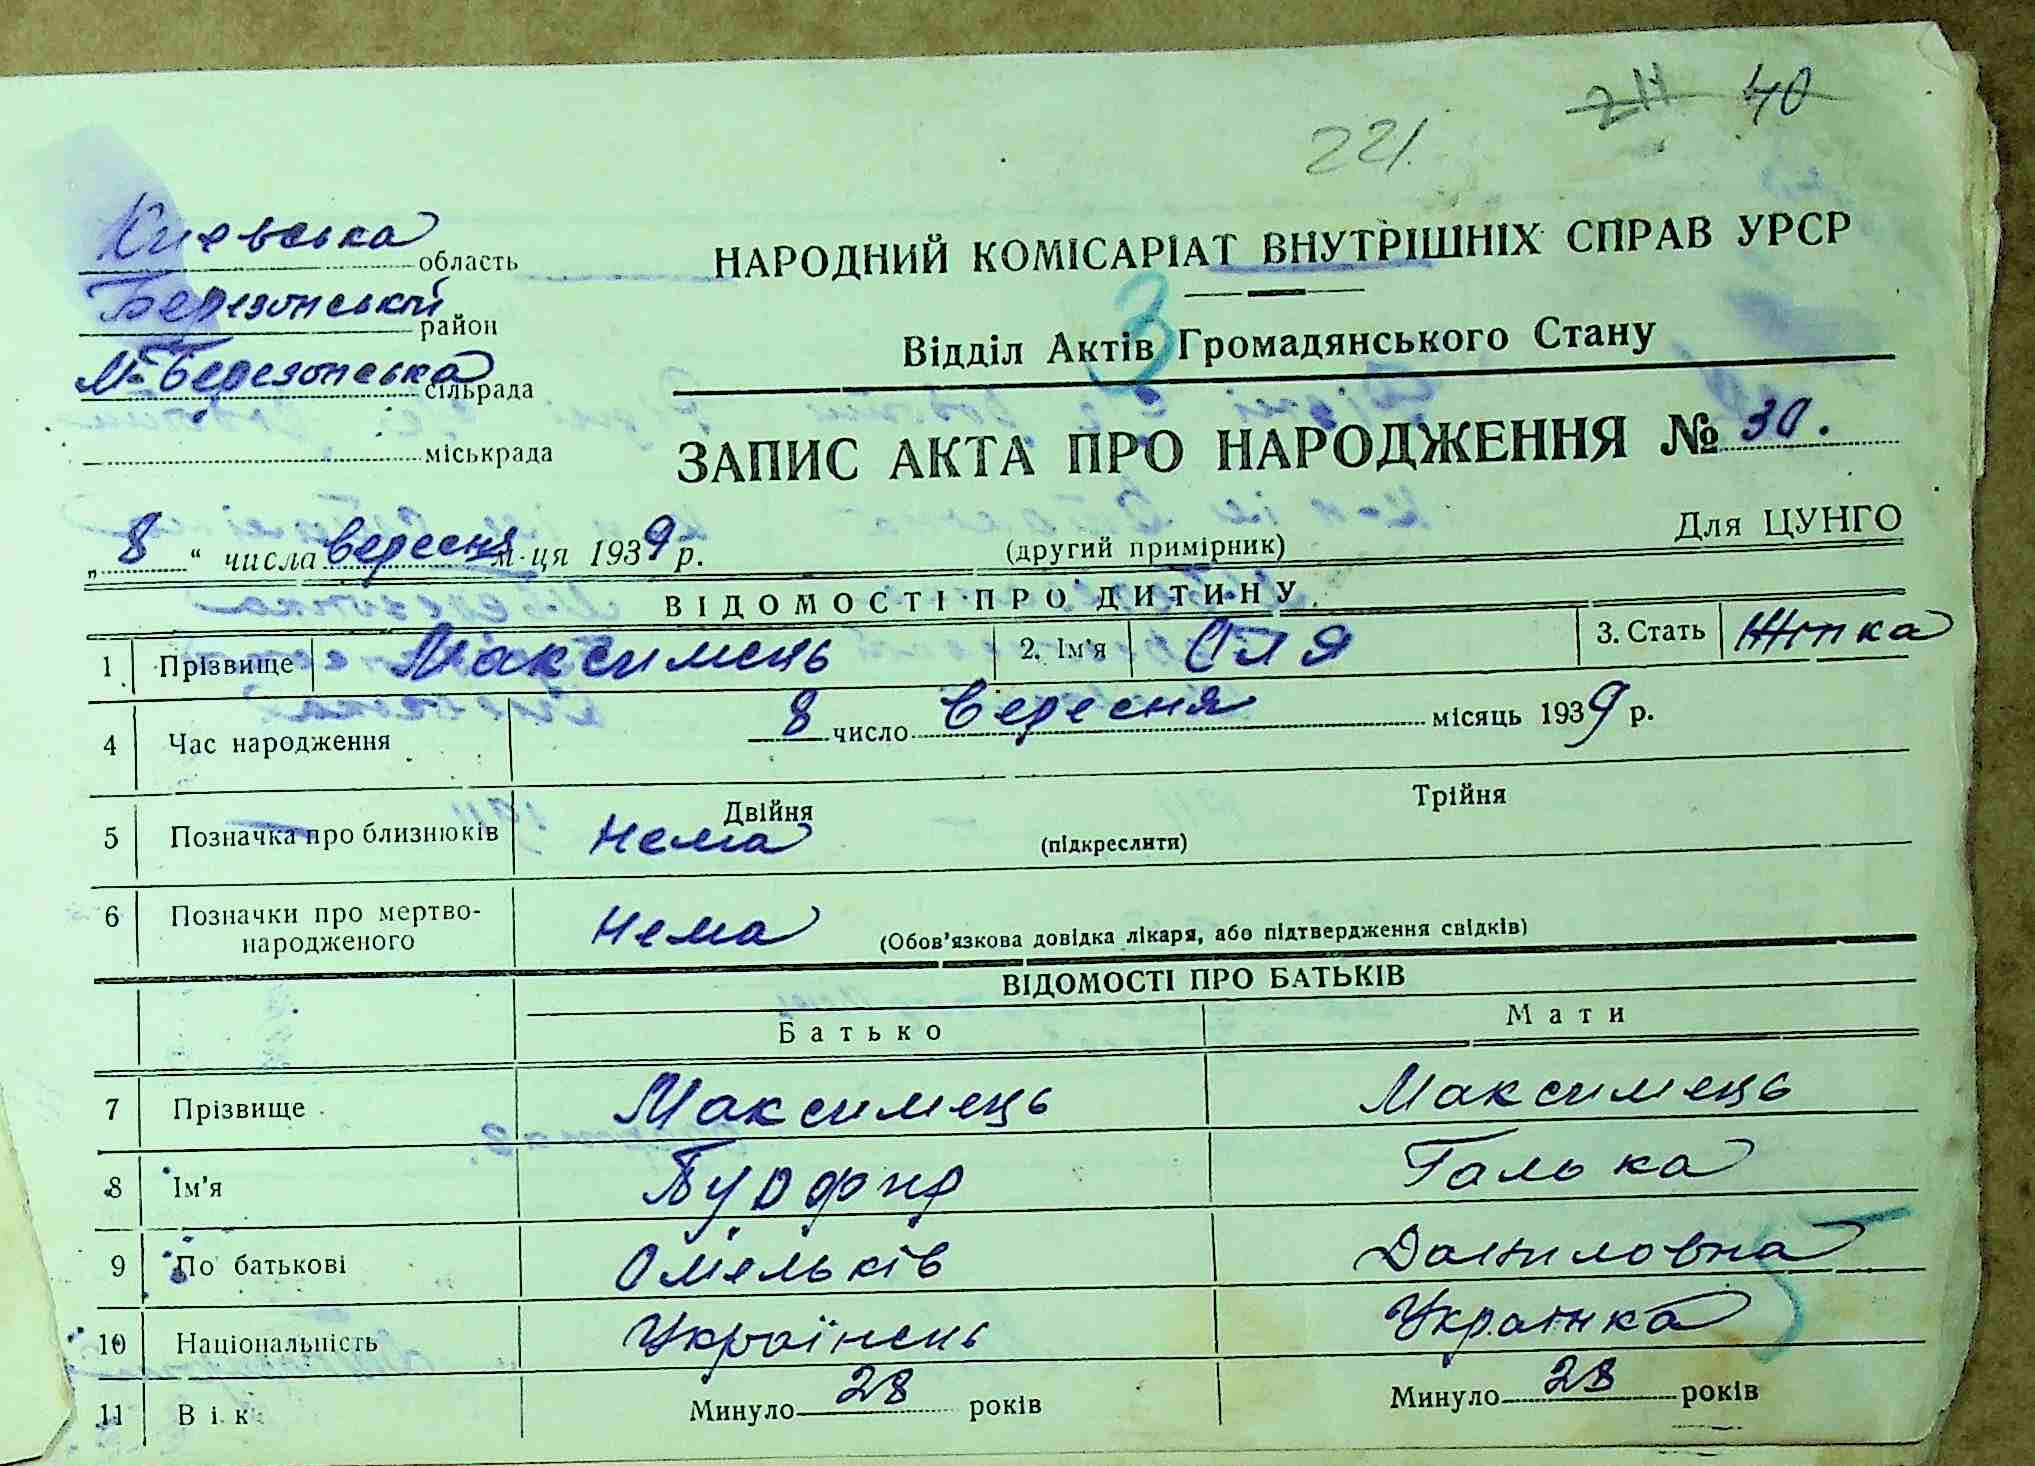 211 40
221.
Киевська область
Березонський район
М-Березонська сільрада
міськрада
НАРОДНИЙ КОМІСАРІАТ ВНУТРІШНІХ СПРАВ УРСР
3
Відділ Актів Громадянського Стану
ЗАПИС АКТА ПРО НАРОДЖЕННЯ № 30.
„8“ числа вересня м-ця 1939 р. (другий примірник) Для ЦУНГО
ВІДОМОСТІ ПРО ДИТИНУ
1 Прізвище Максимець 2. Ім'я Оля 3. Стать Жінка
4 Час народження 8 число вересня місяць 1939 р.
5 Позначка про близнюків Двійня Трійня
нема (підкреслити)
6 Позначки про мертво-
народженого нема (Обов'язкова довідка лікаря, або підтвердження свідків)
ВІДОМОСТІ ПРО БАТЬКІВ
Батько Мати
7 Прізвище Максимець Максимець
8 Ім'я Галька
9 По батькові Омельків Даниловна
10 Національність Українець Українка
11 Вік Минуло 28 років Минуло 28 років